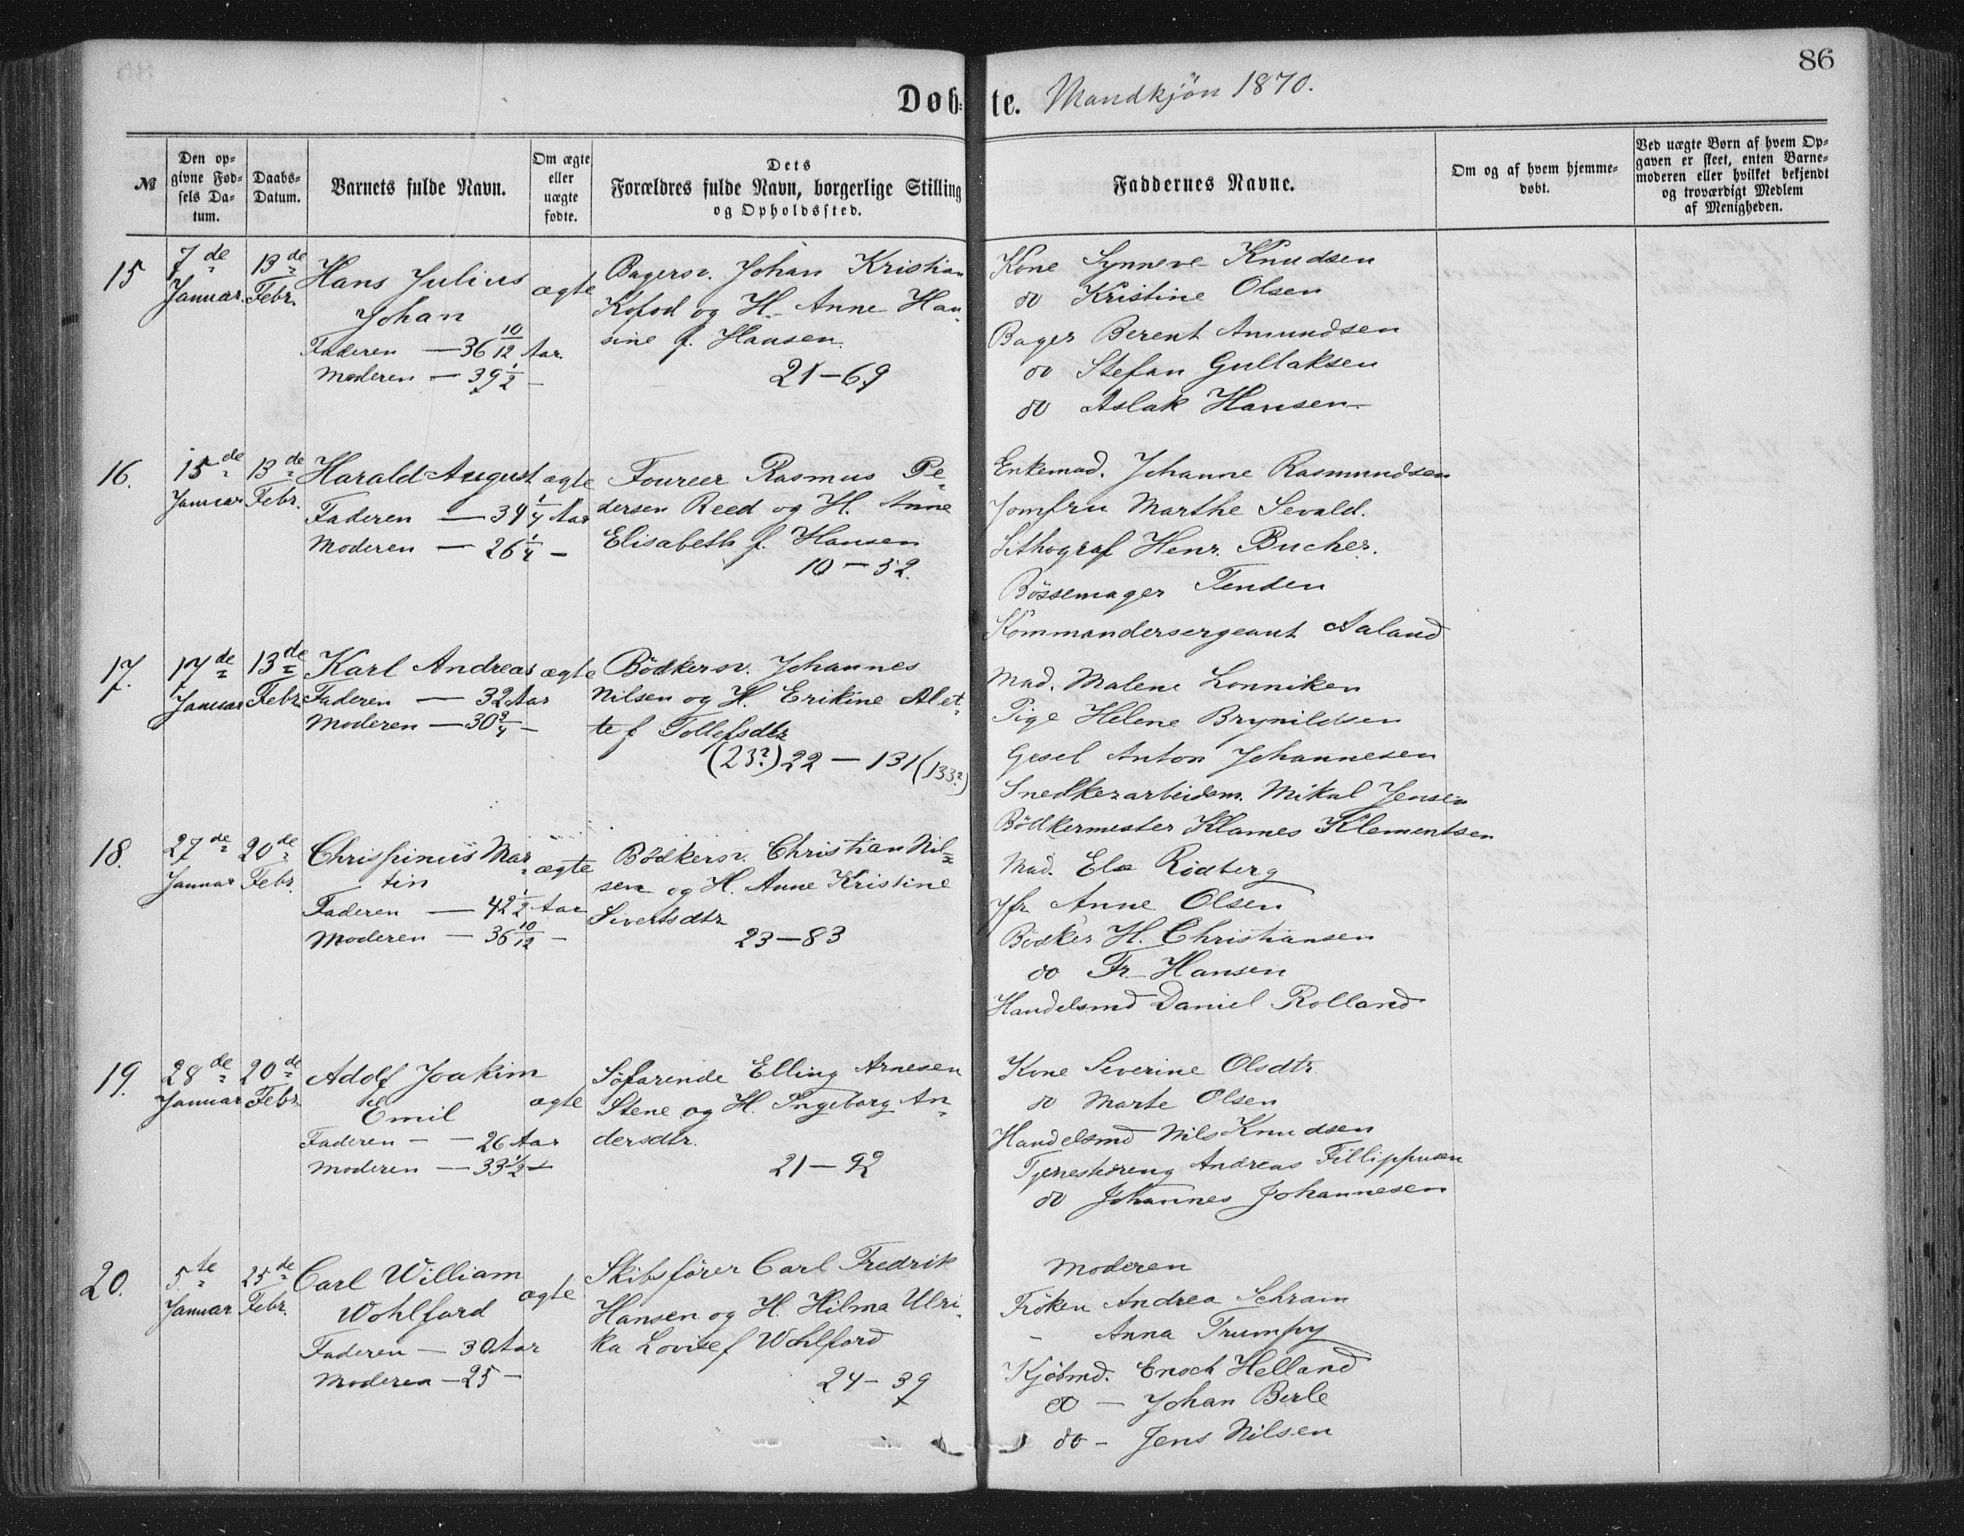 86
Døbte. Mandkjøn 1870.
№
Den opgivne Fødsels Datum.
Daabs-Datum.
Barnets fulde Navn.
Om ægte eller uægte fødte.
Dets Forældres fulde Navn, borgerlige Stilling og Opholdssted.
Faddernes Navne.
Om og af hvem hjemmedøbt.
Ved uægte Børn af hvem Opgaven er skeet, enten Barnemoderen eller hvilket bekjendt og troværdigt Medlem af Menigheden.
15
7de Januar.
13de Febr.
Hans Julius
Johan
Faderen — 36 10/12 Aar
Moderen — 39 1/2 —
ægte
Bagersv. Johan Kristian
Kofod og H. Anne Han-
sine f. Hansen.
21—69
Kone Synneve Knudsen
do Kristine Olsen
Bager Berent Amundsen
do Stefan Gullaksen
do Aslak Hansen
16.
15de Januar
13de Febr.
Harald August
Faderen — 34 1/4 Aar
Moderen — 26 1/4 —
ægte
Foureer Rasmus Pe-
dersen Reed og H. Anne
Elisabeth f. Hansen
10—52.
Enkemad. Johanne Rasmundsen
Jomfru Marthe Sevald.
Lithograf Henr. Bucher.
Bøssemager Tenden
Kommandersergeant Aaland
17.
17de Januar
13de Febr.
Karl Andreas
Faderen — 32 Aar
Moderen — 30 3/4 —
ægte
Bødkersv. Johannes
Nilsen og H. Erikine Alet-
te f Tollefsdtr
(23?) 22 — 131 (133?)
Mad. Malene Lonniken
Pige Helene Brynildsen
Gesel Anton Johannesen
Snedkerarbeidsm. Mikal Jensen
Bødkermester Klames Klementsen
18.
27de Januar
20de Febr.
Chrispinus Mar-
tin
Faderen — 42 1/2 Aar
Moderen — 36 10/12 —
ægte
Bødkersv. Christian Nil-
sen og H. Anne Kristine
Sivertsdtr
23—83
Mad. Ela Rødberg
Jfr Anne Olsen
Bødker H. Christiansen
do Fr. Hansen
Handelsmd Daniel Rolland
19.
28de Januar
20de Febr.
Adolf Joakim
Emil
Faderen — 26 Aar
Moderen — 33 1/2 —
ægte
Søfarende Elling Arnesen
Stene og H. Ingeborg An-
dersdtr.
21—92
Kone Severine Olsdtr
do Marte Olsen
Handelsmd Nils Knudsen
Tjenestdreng Andreas Fillippusen
do Johannes Johannesen
20.
5te Januar
25de Febr.
Carl William
Wohlfard
Faderen — 30 Aar
Moderen — 25 —
ægte
Skibsfører Carl Fredrik
Hansen og H. Hilma Ulri-
ka Lovise f Wohlfard
24—39
Moderen
Frøken Andrea Schram
— Anna Trumpy
Kjøbmd. Enoch Helland
do — Johan Berle
do — Jens Nilsen